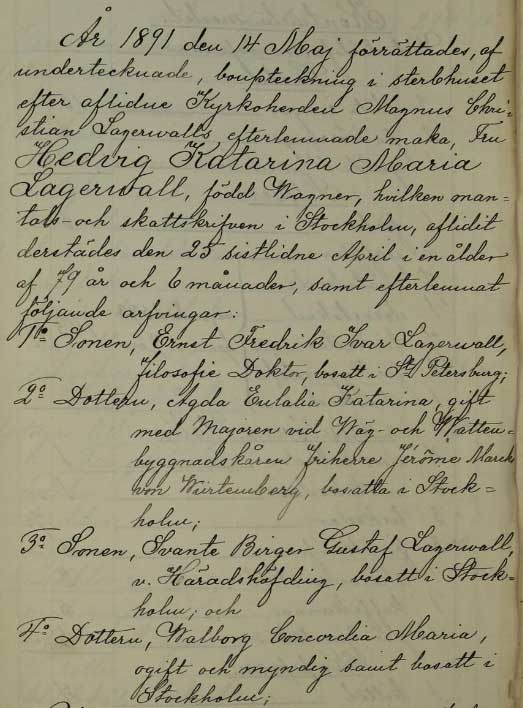 År 1891 den 14 Maj förrättades, af
undertecknade, boupteckning i sterbhuset
efter aflidne Kyrkoherden Magnus Chri-
stian Lagerwalls efterlemnade maka, Fru
Hedvig Katarina Maria
Lagerwall, född Wagner, hvilken man-
tals- och skattskrifven i Stockholm, aflidit
derstädes den 25 sistlidne April i en ålder
af 79 år och 6 månader, samt efterlemnat
följande arfvingar:
1o Sonen, Ernst Fredrik Ivar Lagerwall,
filosofie Doktor, bosatt i St Petersburg;
2o Dottern, Agda Eulalia Katarina, gift
med Majoren vid Wäg- och Watten-
byggnadskåren friherre Jérôme Marck
von Würtemberg, bosatta i Stock-
holm;
3o Sonen, Svante Birger Gustaf Lagerwall,
v. Häradshöfding, bosatt i Stock-
holm; och
4o Dottern, Walborg Concordia Maria,
ogift och myndig samt bosatt i
Stockholm;